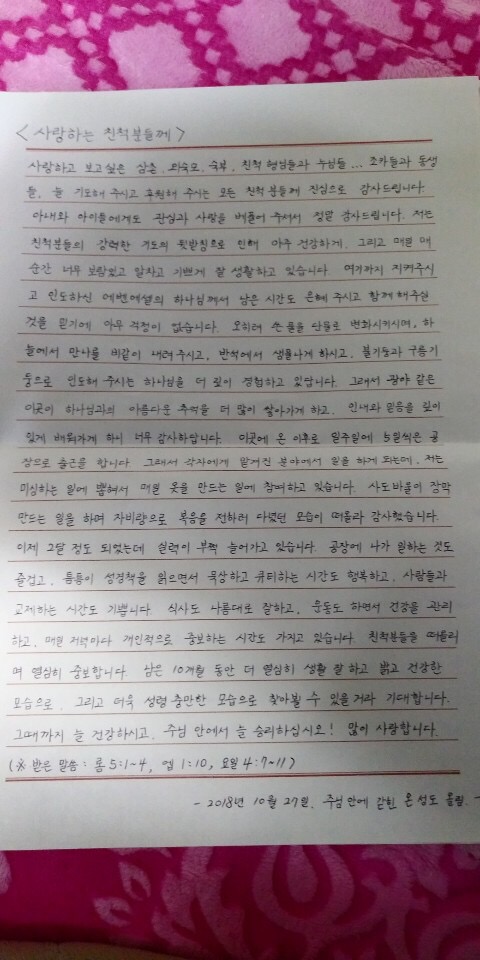 < 사랑하는 친척분들께 >
사랑하고 보고싶은 삼촌, 외숙모, 숙부, 친척 형님들과 누님들... 조카들과 동생
들, 늘 기도해 주시고 후원해 주시는 모든 친척 분들께 진심으로 감사드립니다.
아내와 아이들에게도 관심과 사랑을 베풀어 주셔서 정말 감사드립니다. 저는
친척분들의 강력한 기도의 뒷받침으로 인해 아주 건강하게, 그리고 매일 매
순간 너무 보람있고 알차고 기쁘게 잘 생활하고 있습니다. 여기까지 지켜주시
고 인도하신 에벤에셀의 하나님께서 남은 시간도 은혜 주시고 함께 해주실
것을 믿기에 아무 걱정이 없습니다. 오히려 쓴 물을 단물로 변화시키시며, 하
늘에서 만나를 비같이 내려 주시고, 반석에서 샘물나게 하시고, 불기둥과 구름기
둥으로 인도해 주시는 하나님을 더 깊이 경험하고 있습니다. 그래서 광야 같은
이곳이 하나님과의 아름다운 추억을 더 많이 쌓아가게 하고, 인내와 믿음을 깊이
있게 배워가게 하니 너무 감사하답니다. 이곳에 온 이후로 일주일에 5일씩은 공
장으로 출근을 합니다. 그래서 각자에게 맡겨진 분야에서 일을 하게 되는데, 저는
미싱하는 일에 뽑혀서 매일 옷을 만드는 일에 참여하고 있습니다. 사도바울이 장막
만드는 일을 하며 자비량으로 복음을 전하러 다녔던 모습이 떠올라 감사했습니다.
이제 2달 정도 되었는데 실력이 부쩍 늘어가고 있습니다. 공장에 나가 일하는 것도
즐겁고, 틈틈이 성경책을 읽으면서 묵상하고 큐티하는 시간도 행복하고, 사람들과
교제하는 시간도 기쁩니다. 식사도 나름대로 잘하고, 운동도 하면서 건강을 관리
하고, 매일 저녁마다 개인적으로 중보하는 시간도 가지고 있습니다. 친척분들을 떠올리
며 열심히 중보합니다. 남은 10개월 동안 더 열심히 생활 잘 하고 밝고 건강한
모습으로, 그리고 더욱 성령 충만한 모습으로 찾아뵐 수 있을 거라 기대합니다.
그때까지 늘 건강하시고, 주님 안에서 늘 승리하십시오! 많이 사랑합니다.
(※ 받은 말씀 : 롬 5:1~4, 엡 1:10, 요일 4:7~11)
- 2018년 10월 27일. 주님 안에 갇힌 온 성도 올림. -